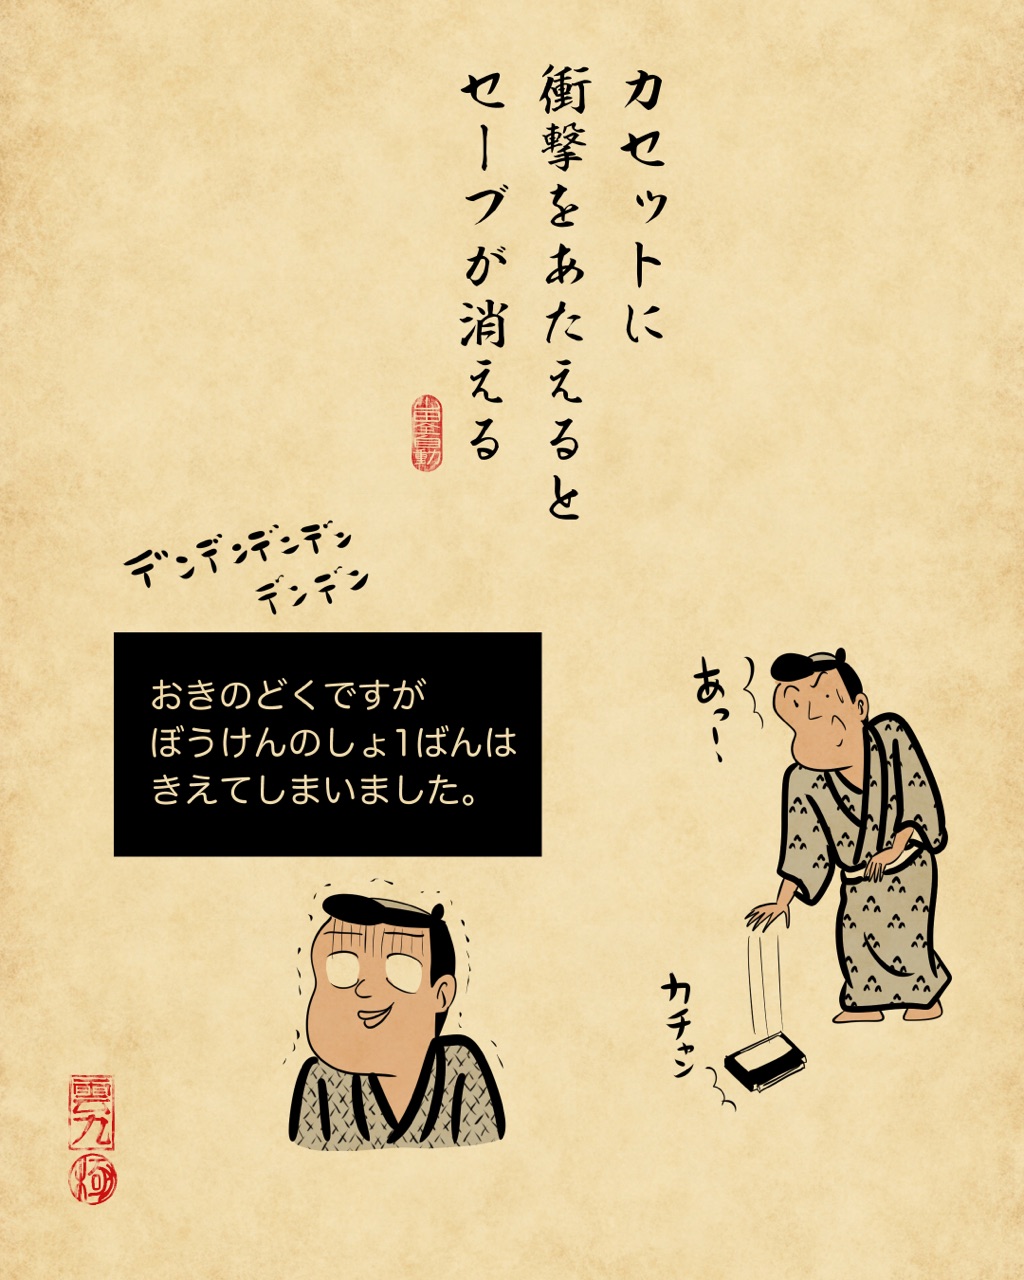 カセットに
衝撃をあたえると
セーブが消える
デンデンデンデン
デンデン
おきのどくですが
ぼうけんのしょ1ばんは
きえてしまいました。
あっ!
カチャン